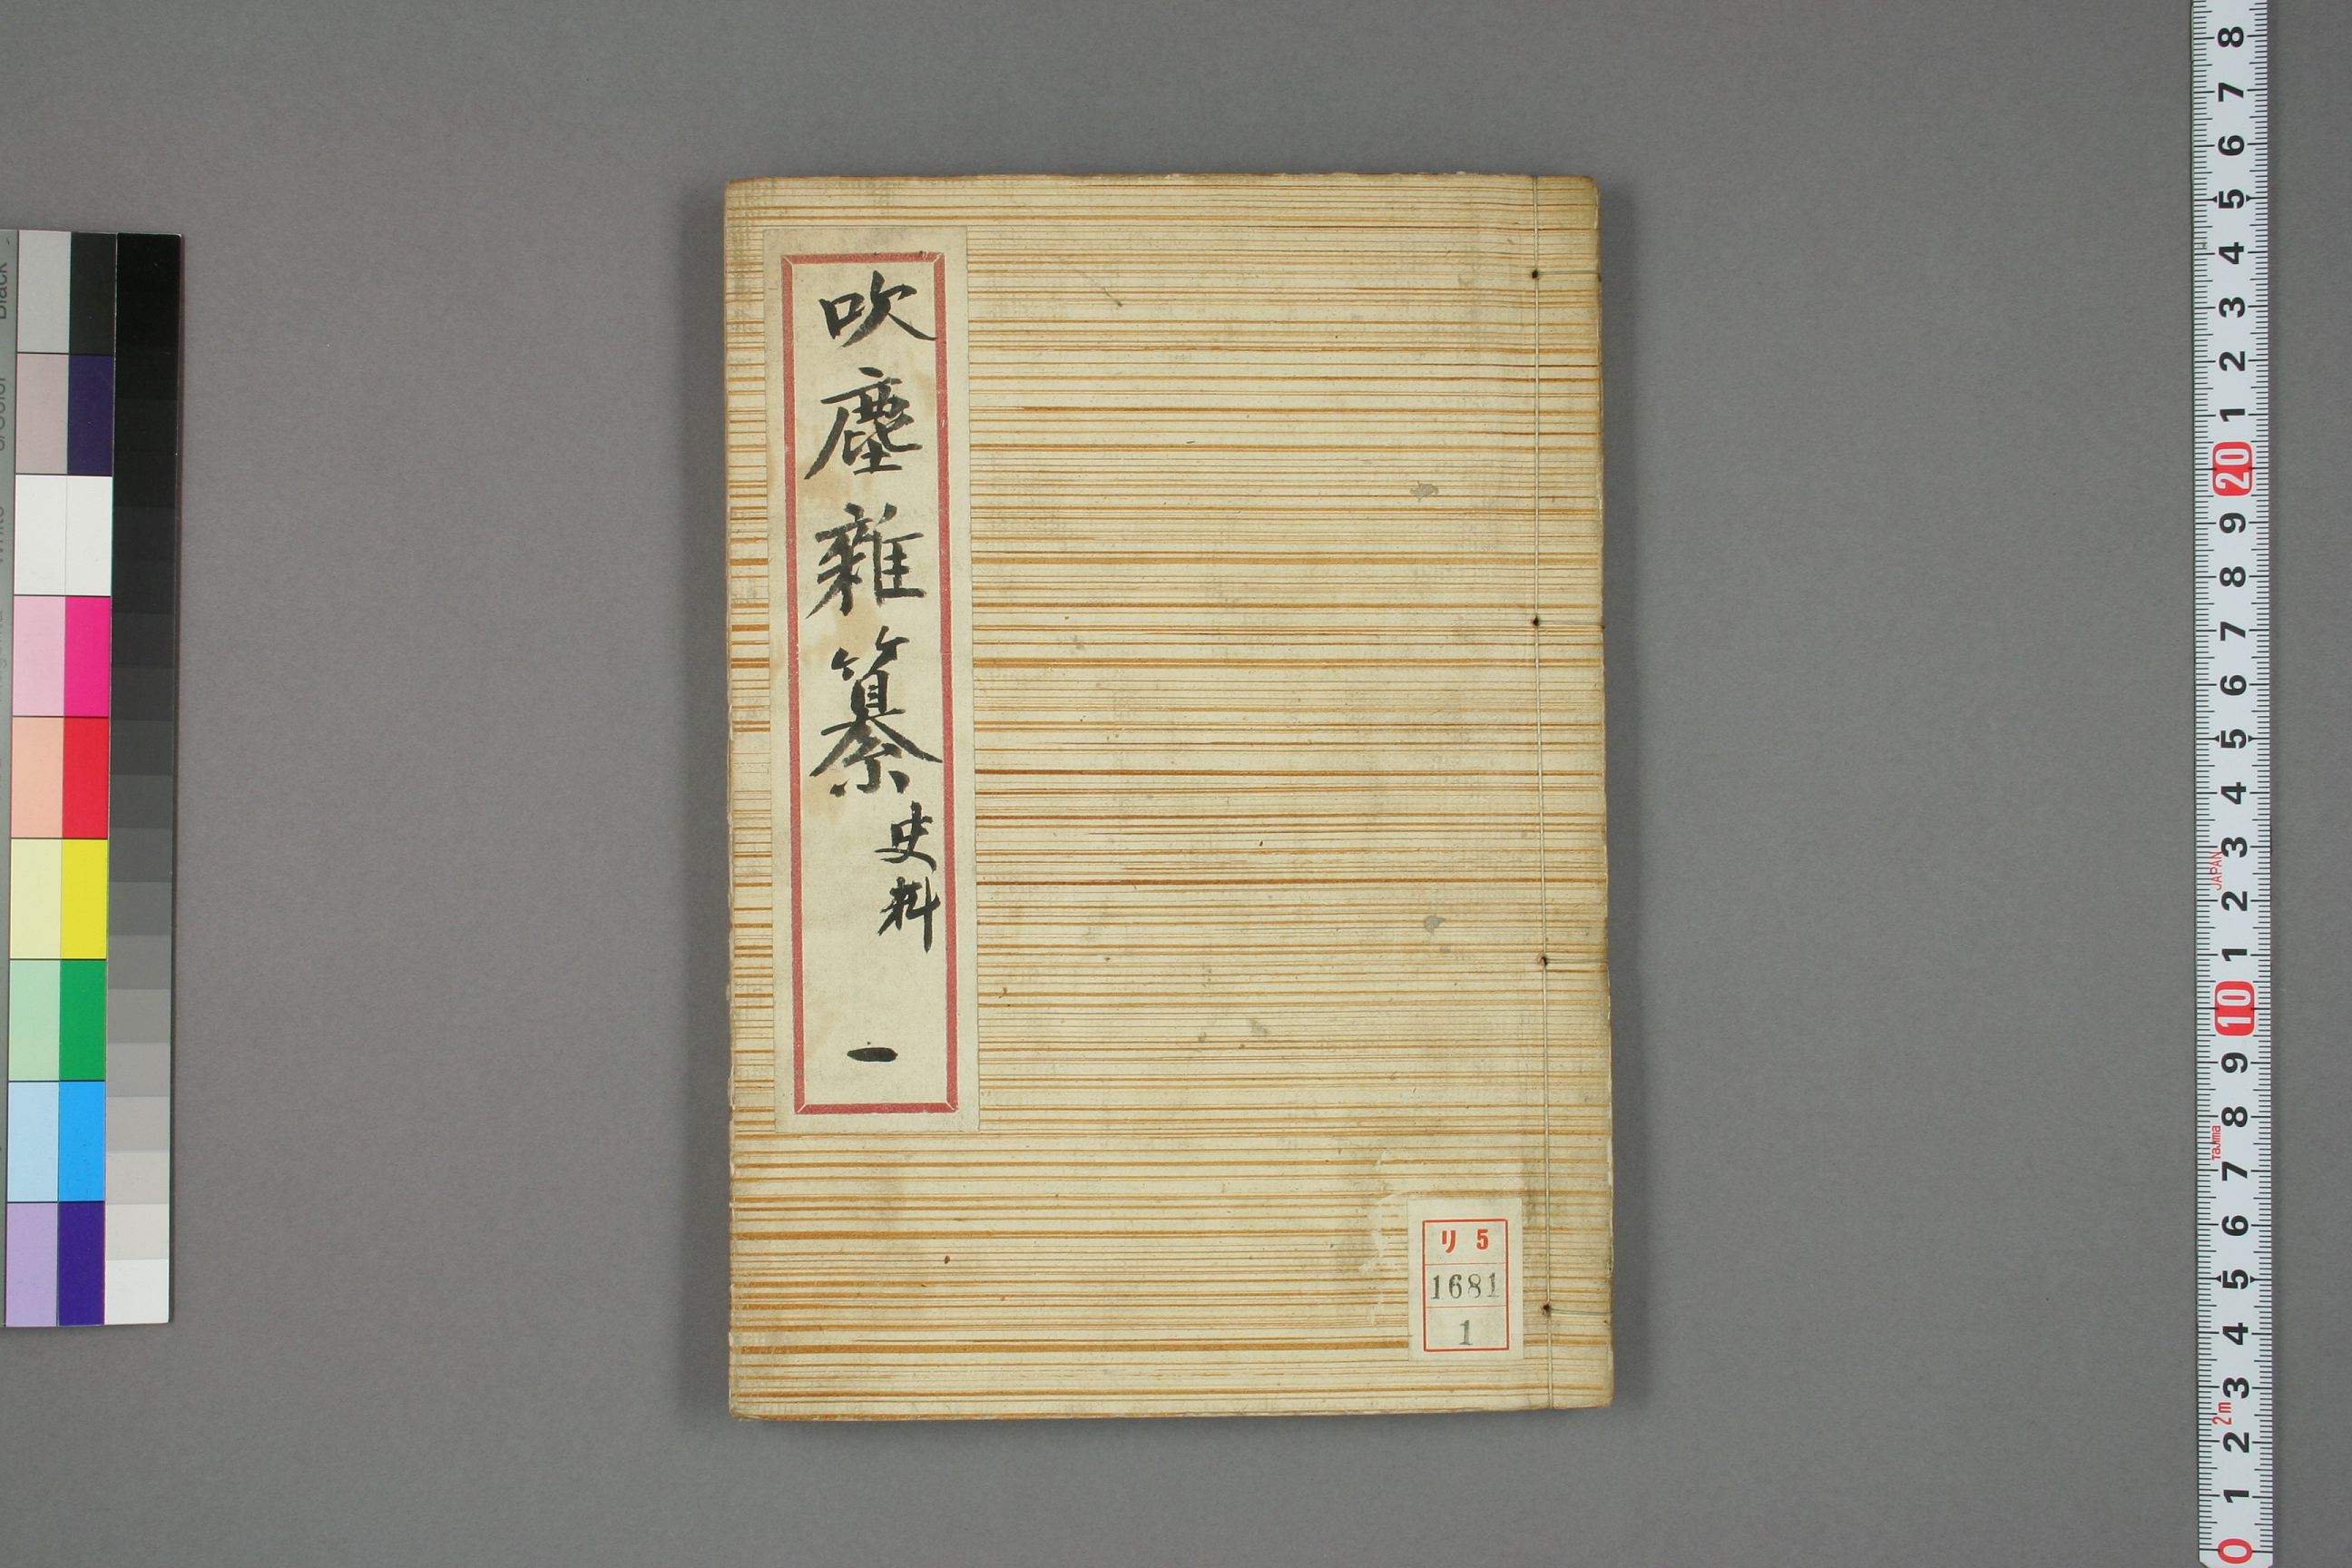 吹塵雜纂 史料 一
リ 5
1681
1
8
7
6
5
4
3
2
1
20
9
8
7
6
5
4
3
2
1
10
9
8
7
6
5
4
3
2
1
0
JAPAN
Tajima
2m
Black
3/Color
White